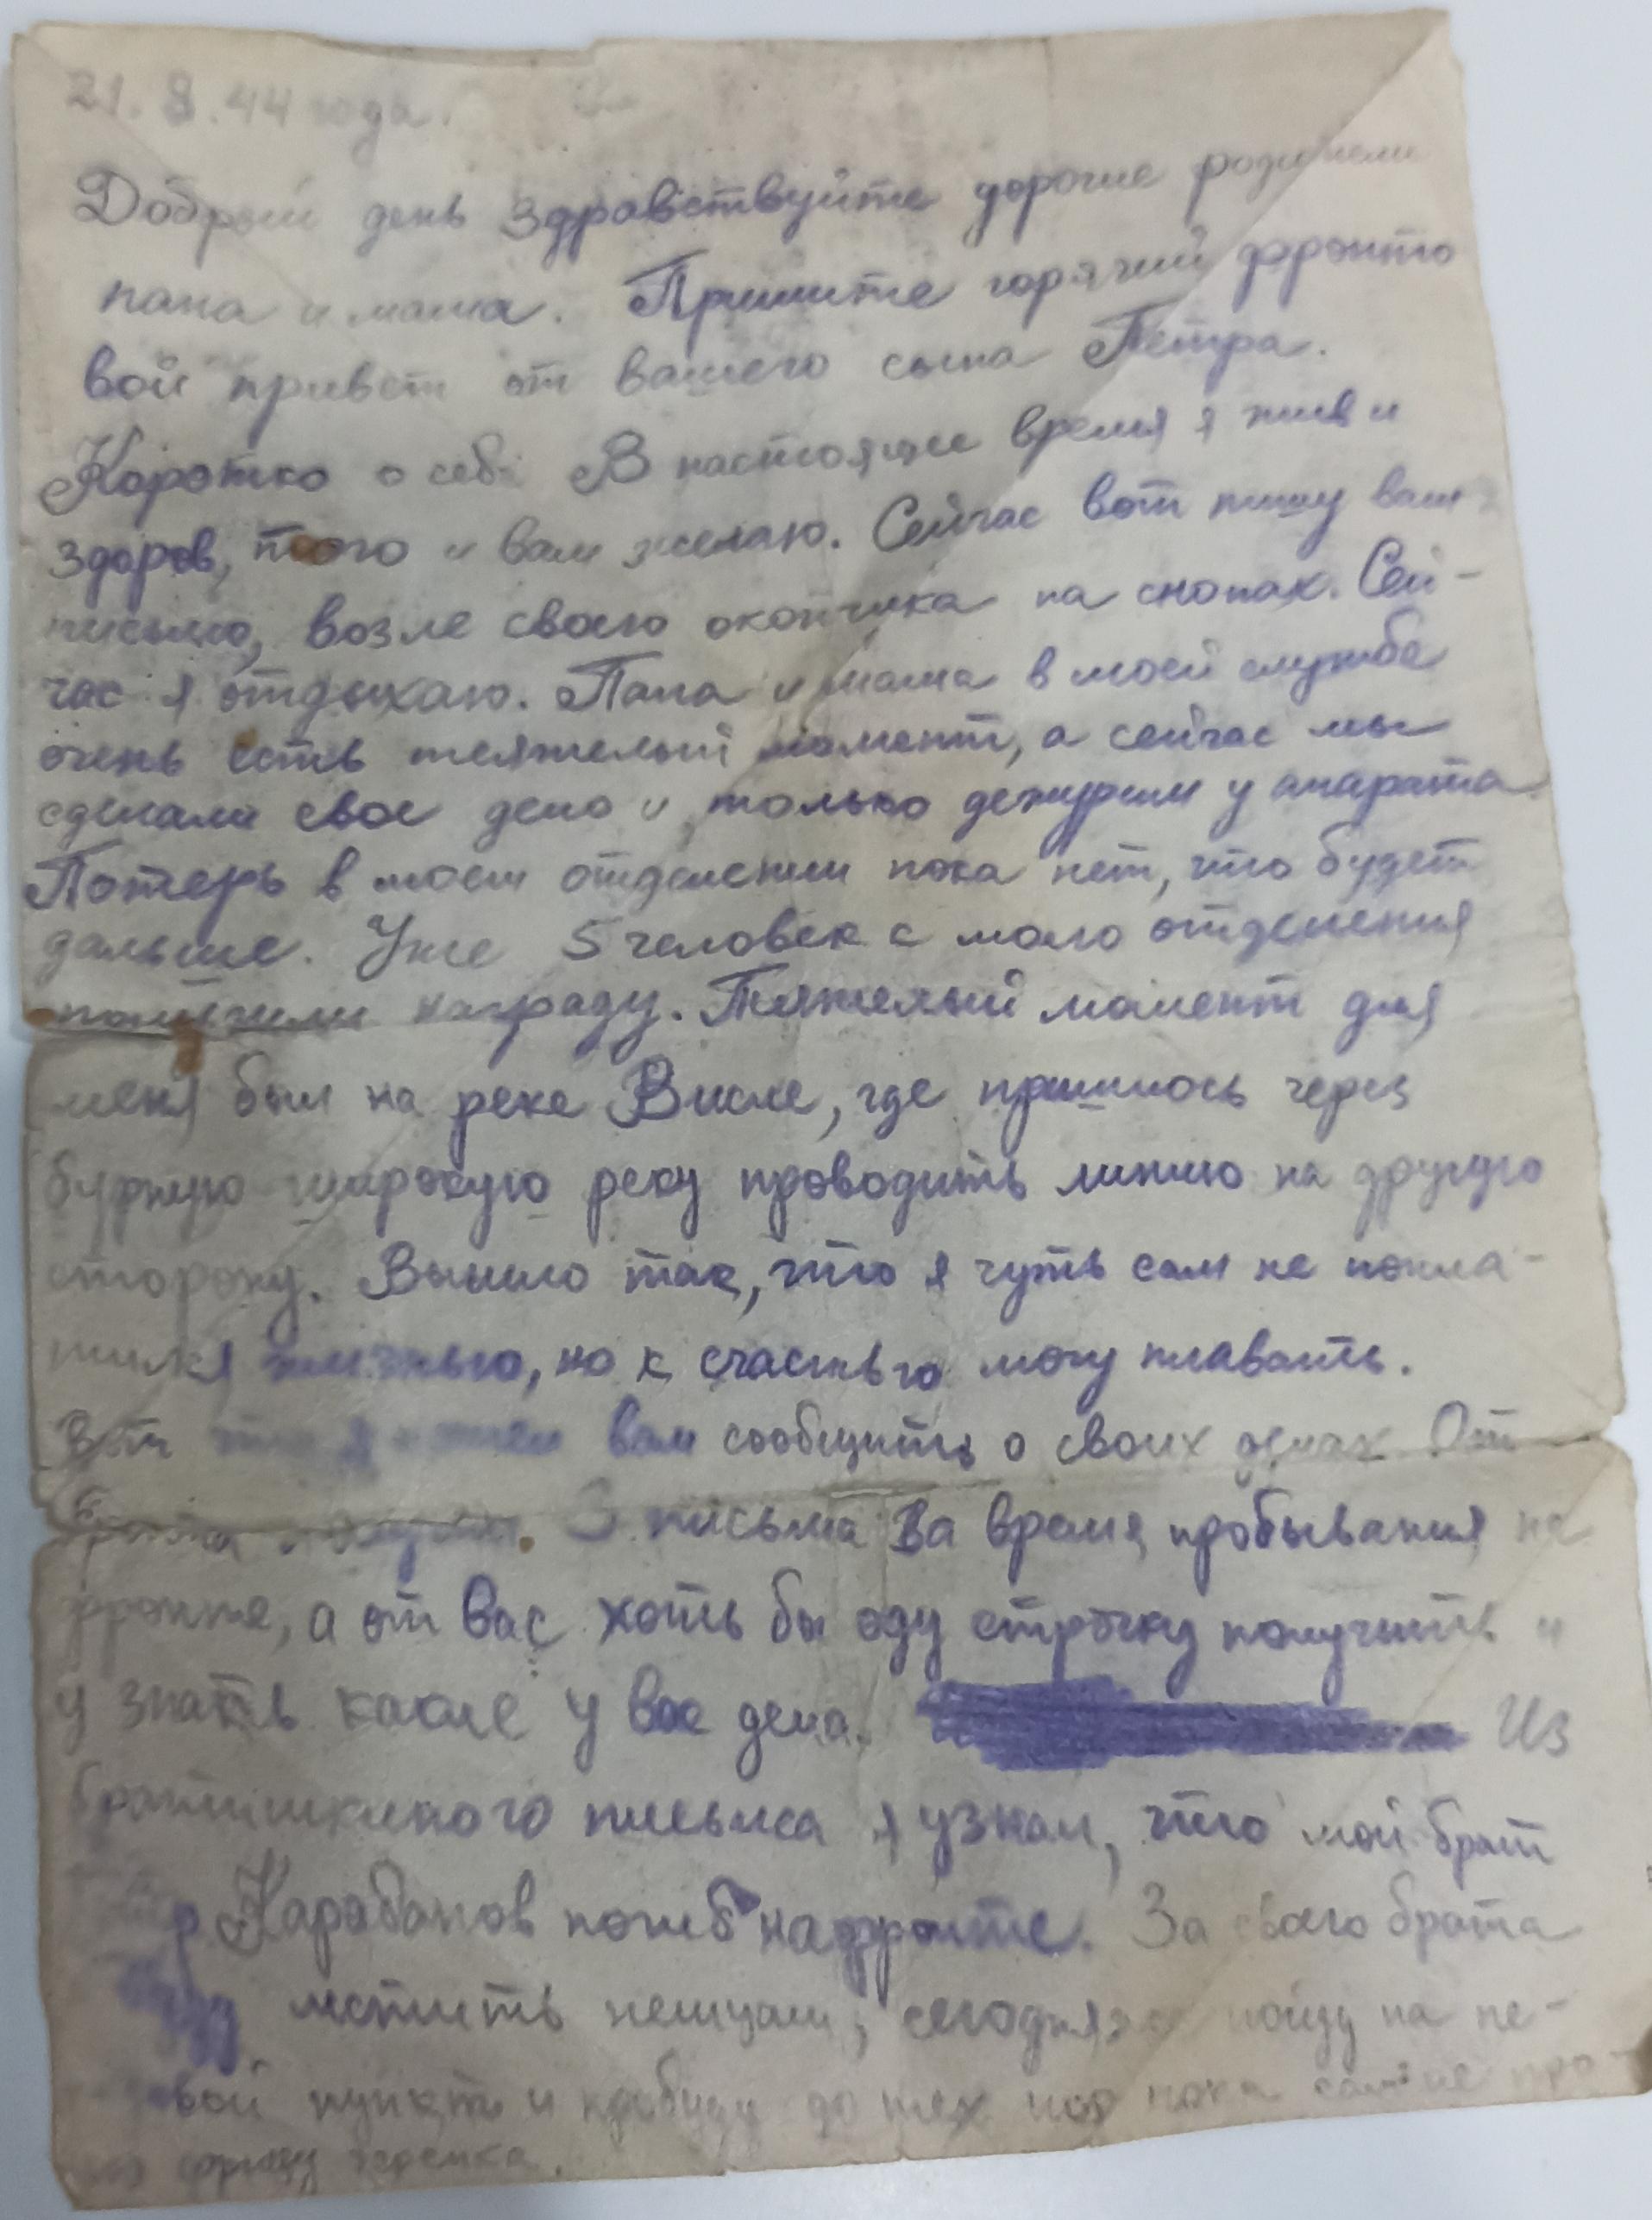 21.8.44 года.
Добрый день здравствуйте дорогие родители
папа и мама. Примите горячий фронто
вой привет от вашего сына Петра.
Коротко о себе В настоящее время я жив и
здоров, того и вам желаю. Сейчас вот пишу вам
письмо, возле своего окопчика на снопах. Сей-
час я отдыхаю. Папа и мама в моей службе
очень есть тяжелый момент, а сейчас мы
сделали свое дело и только дежурим у апарата
Потерь в моем отделении пока нет, что будет
дальше. Уже 5 человек с моего отделения
получили награду. Тяжелый момент для
меня был на реке Висле, где пришлось через
бурную широкую реку проводить линию на другую
сторону. Вышло так, что я чуть сам не попла-
тился жизнью, но к счастью могу плавать.
Вот что я вам сообщить о своих делах От
брата получил. 3 письма За время пробывания на
фронте, а от Вас хоть бы оду строчку получить и
узнать какие у Вас дела. Из
братишкиного письма я узнал, что мой брат
Карабанов погиб на фронте. За своего брата
буду мстить немцам, сегодня пойду на пе-
вой пункт и пробуду до тех пор пока сам не про-
фрицу черепка.